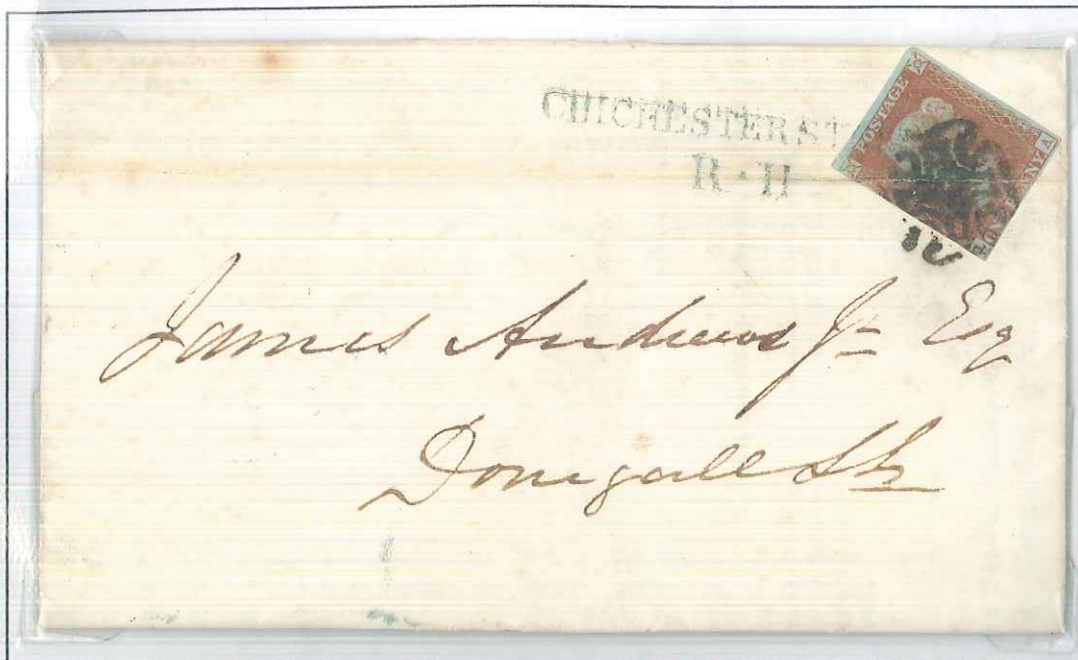 CHICHESTER ST
R·H
POSTAGE
ONE PENNY
A
James Andrews Jr Esq
Donegall St